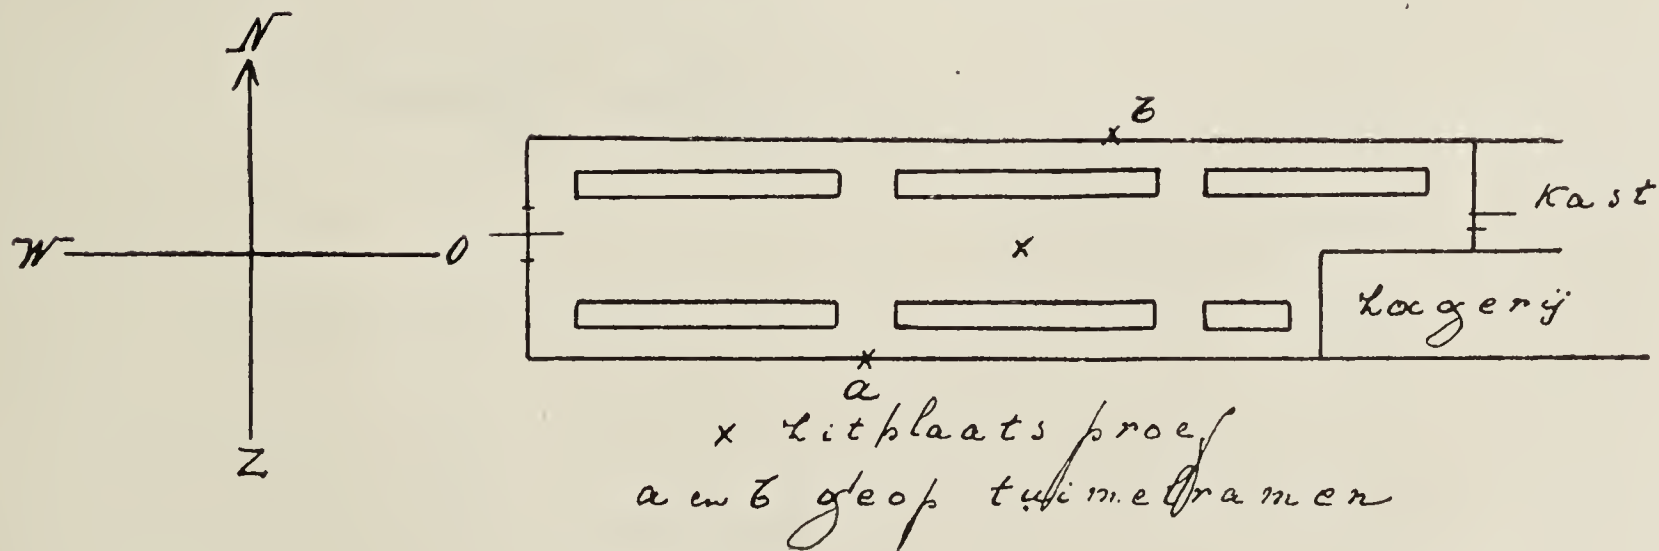 N
W
O
Z
b
Kast
Zagerij
a
x Zitplaats proef
a en b geop tuimelramen